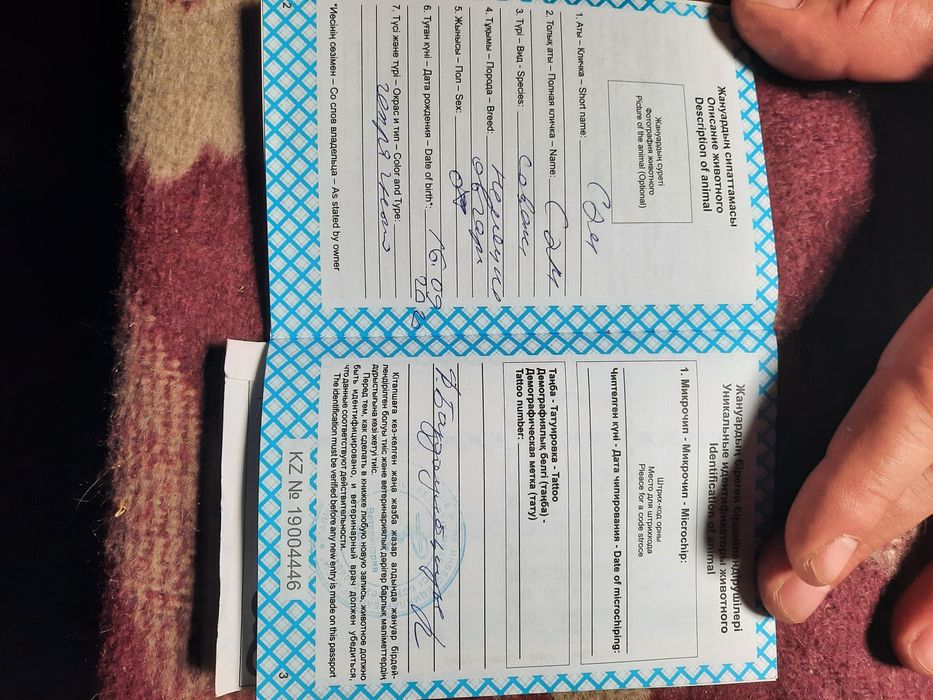 Жануардың сипаттамасы
Описание животного
Description of animal
Жануардың суреті
Фотография животного
Picture of the animal (Optional)
1. Аты – Кличка – Short name: Сэм
2. Толық аты – Полная кличка – Name: Сэм
3. Түрі – Вид - Species: собака
4. Тұқымы – Порода – Breed: немецкая
овчарка
5. Жынысы – Пол – Sex: ♂
6. Туған күні – Дата рождения – Date of birth*: 16.09.
7. Түсі және түрі – Окрас и тип – Color and Type:
*Иесінің сөзімен – Со слов владельца – As stated by owner
2
Жануардың бірегей бірдейлендірушілері
Уникальные идентификаторы животного
Identification of animal
1. Микрочип - Микрочип - Microchip:
Штрих-код орны
Место для штрихкода
Pleace for a code stroce
Чиптелген күні - Дата чипирования - Date of microchiping:
Таңба - Татуировка - Tattoo
Демографиялық белгі (таңба) -
Демографическая метка (тату)
Tattoo number:
Кітапшаға кез-келген жаңа жазба жазар алдында жануар бірдей-
лендірілген болуы тиіс және ветеринариялық дәрігер барлық мәліметтердің
дұрыстығына көзі жетуі тиіс.
Перед тем, как сделать в книжке любую новую запись, животное должно
быть идентифицировано, и ветеринарный врач должен убедиться,
что данные соответствуют действительности.
The identification must be verified before any new entry is made on this passport
KZ № 19004446
3